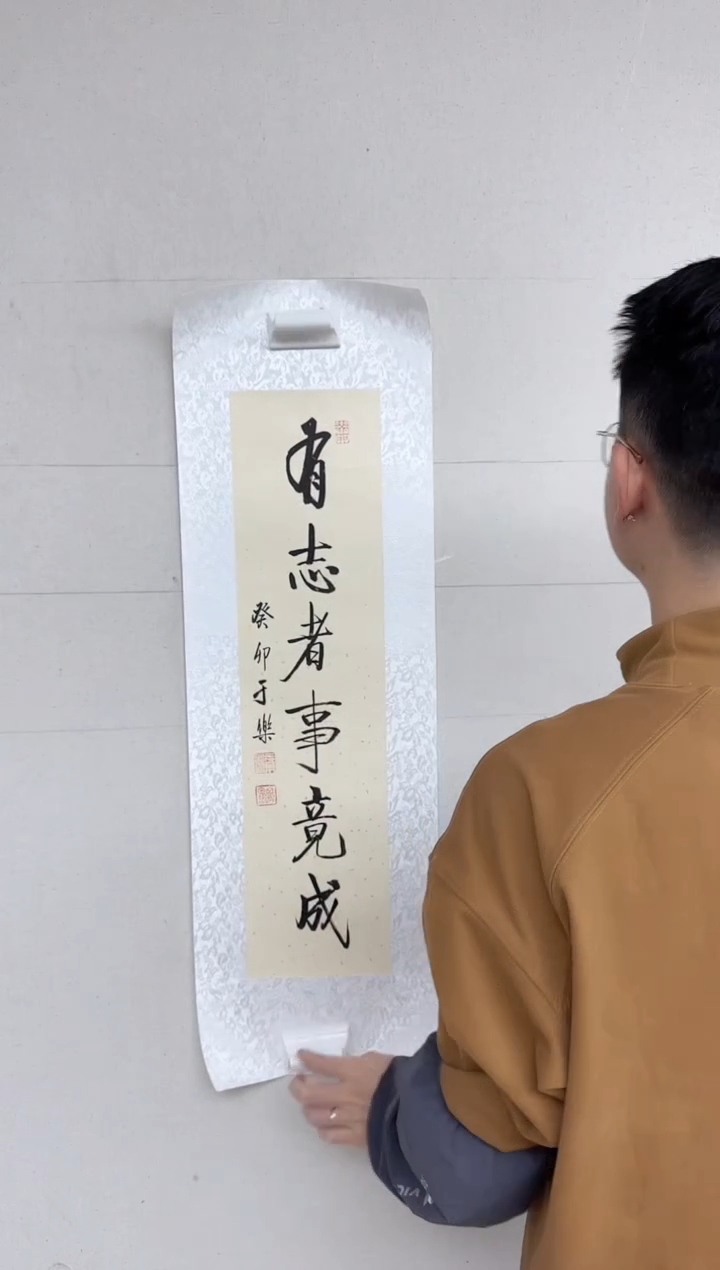 有志者事竟成
癸卯于樂